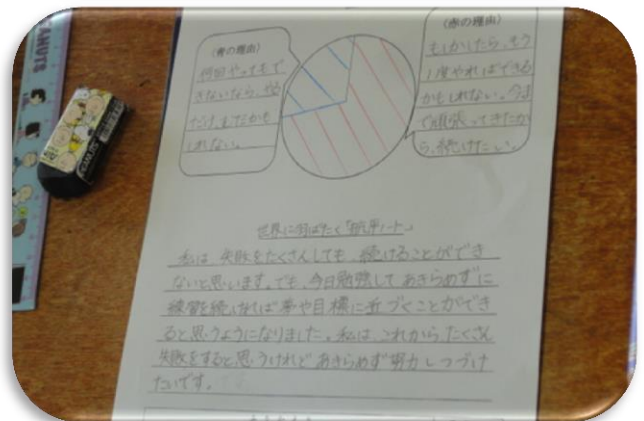 PEANUTS
(青の理由)
何回やってもで
きないなら、やる
だけ、むだかも
しれない。
(赤の理由)
もしかしたら、もう
1度やればできる
かもしれない。今ま
で頑張ってきたか
ら、続けたい。
世界に羽ばたく「航平ノート」
私は、失敗をたくさんしても、続けることができ
ないと思います。でも、今日勉強してあきらめずに
練習を続ければ夢や目標に近づくことができ
ると思うようになりました。私は、これから、たくさん
失敗をすると思うけれどあきらめず努力しつづけ
たいです。